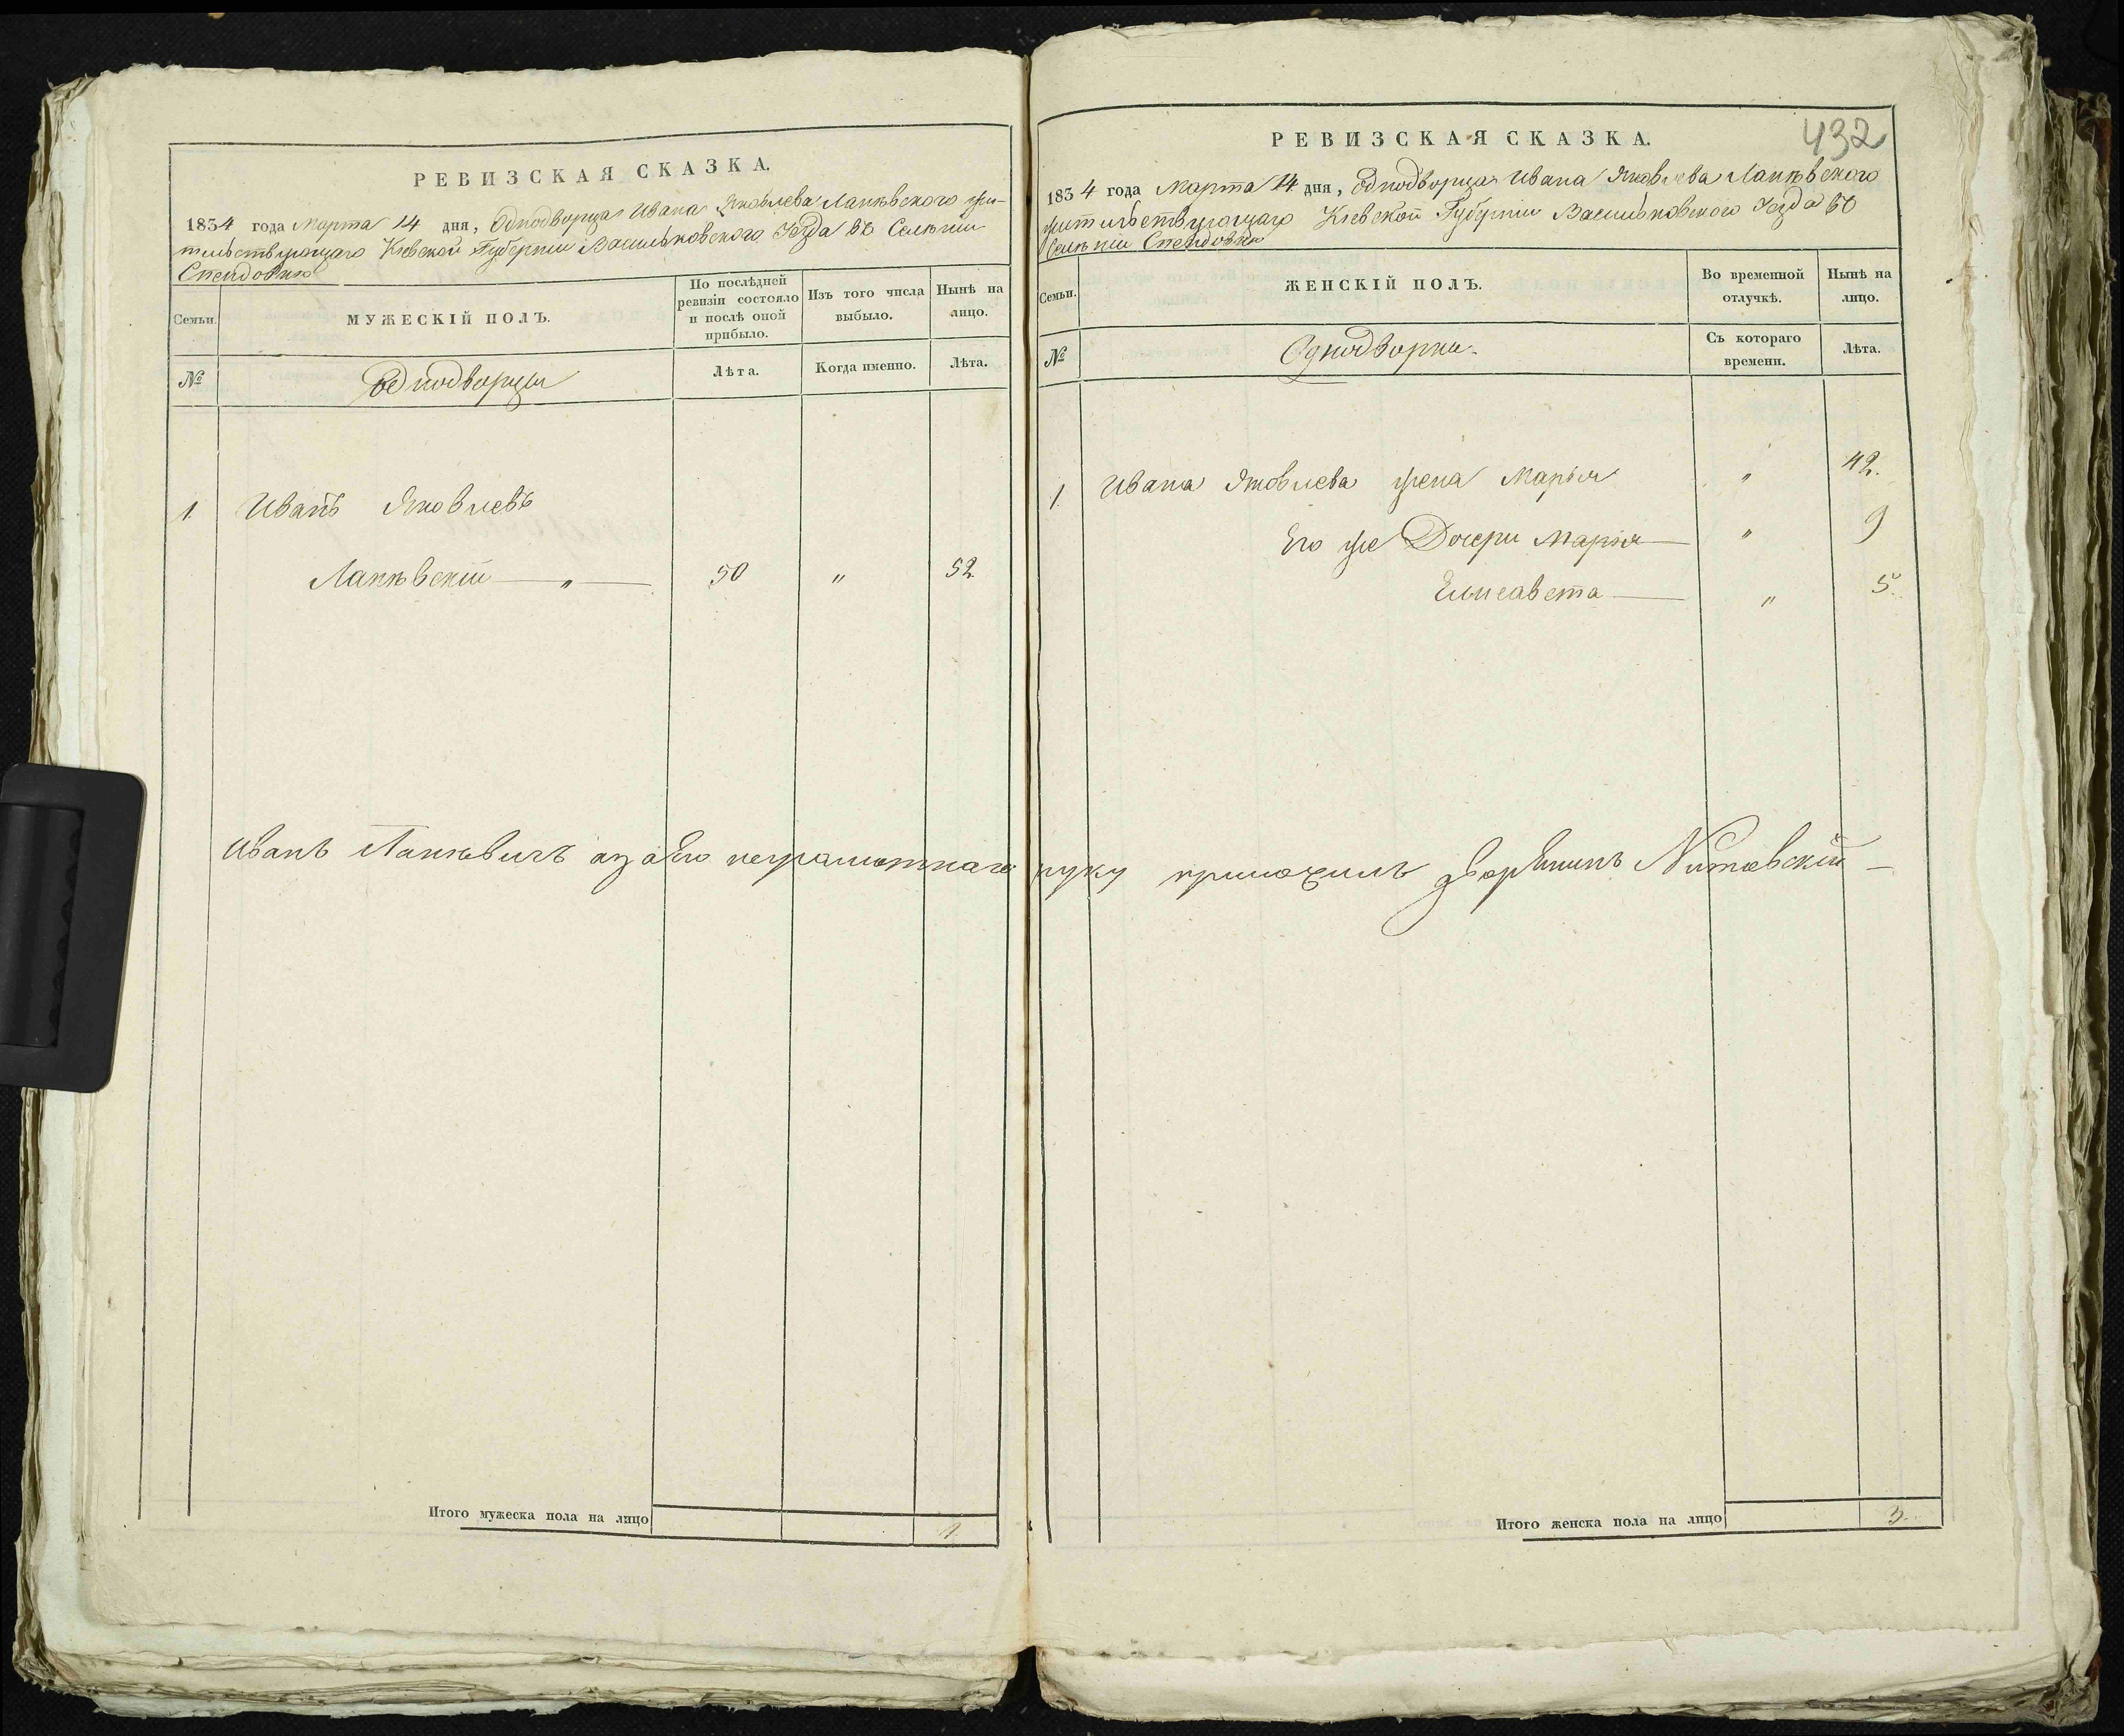 РЕВИЗСКАЯ СКАЗКА.
1834 года Марта 14 дня, Однодворца Ивана Яковлева Лапѣвского жи-
тельствующаго Кіевской Губерніи Васильковского Уезда въ Селѣніи
Спендовки
Семьи.
МУЖЕСКІЙ ПОЛЪ.
По послѣдней ревизіи состояло и послѣ оной прибыло.
Изъ того числа выбыло.
Нынѣ на лицо.
№
Однодворцы
Лѣта.
Когда именно.
Лѣта.
1. Иванъ Яковлевъ
Лапѣвскій — „ — 50 „ 52.
Итого мужеска пола на лицо 1.
432
РЕВИЗСКАЯ СКАЗКА.
1834 года Марта 14 дня, Однодворца Ивана Яковлева Лапѣвского
жительствующаго Кіевской Губерніи Васильковского Уезда въ
Селѣніи Спендовки
Семьи.
ЖЕНСКІЙ ПОЛЪ.
Во временной отлучкѣ.
Нынѣ на лицо.
№
Однодворки
Съ котораго времени.
Лѣта.
1. Ивана Яковлева жена Марья „ 42.
Его же Дочери Марья — „ 9
Елисавета — „ 5.
Иванъ неграмотнаго руку приложилъ дворянинъ
Итого женска пола на лицо 3.